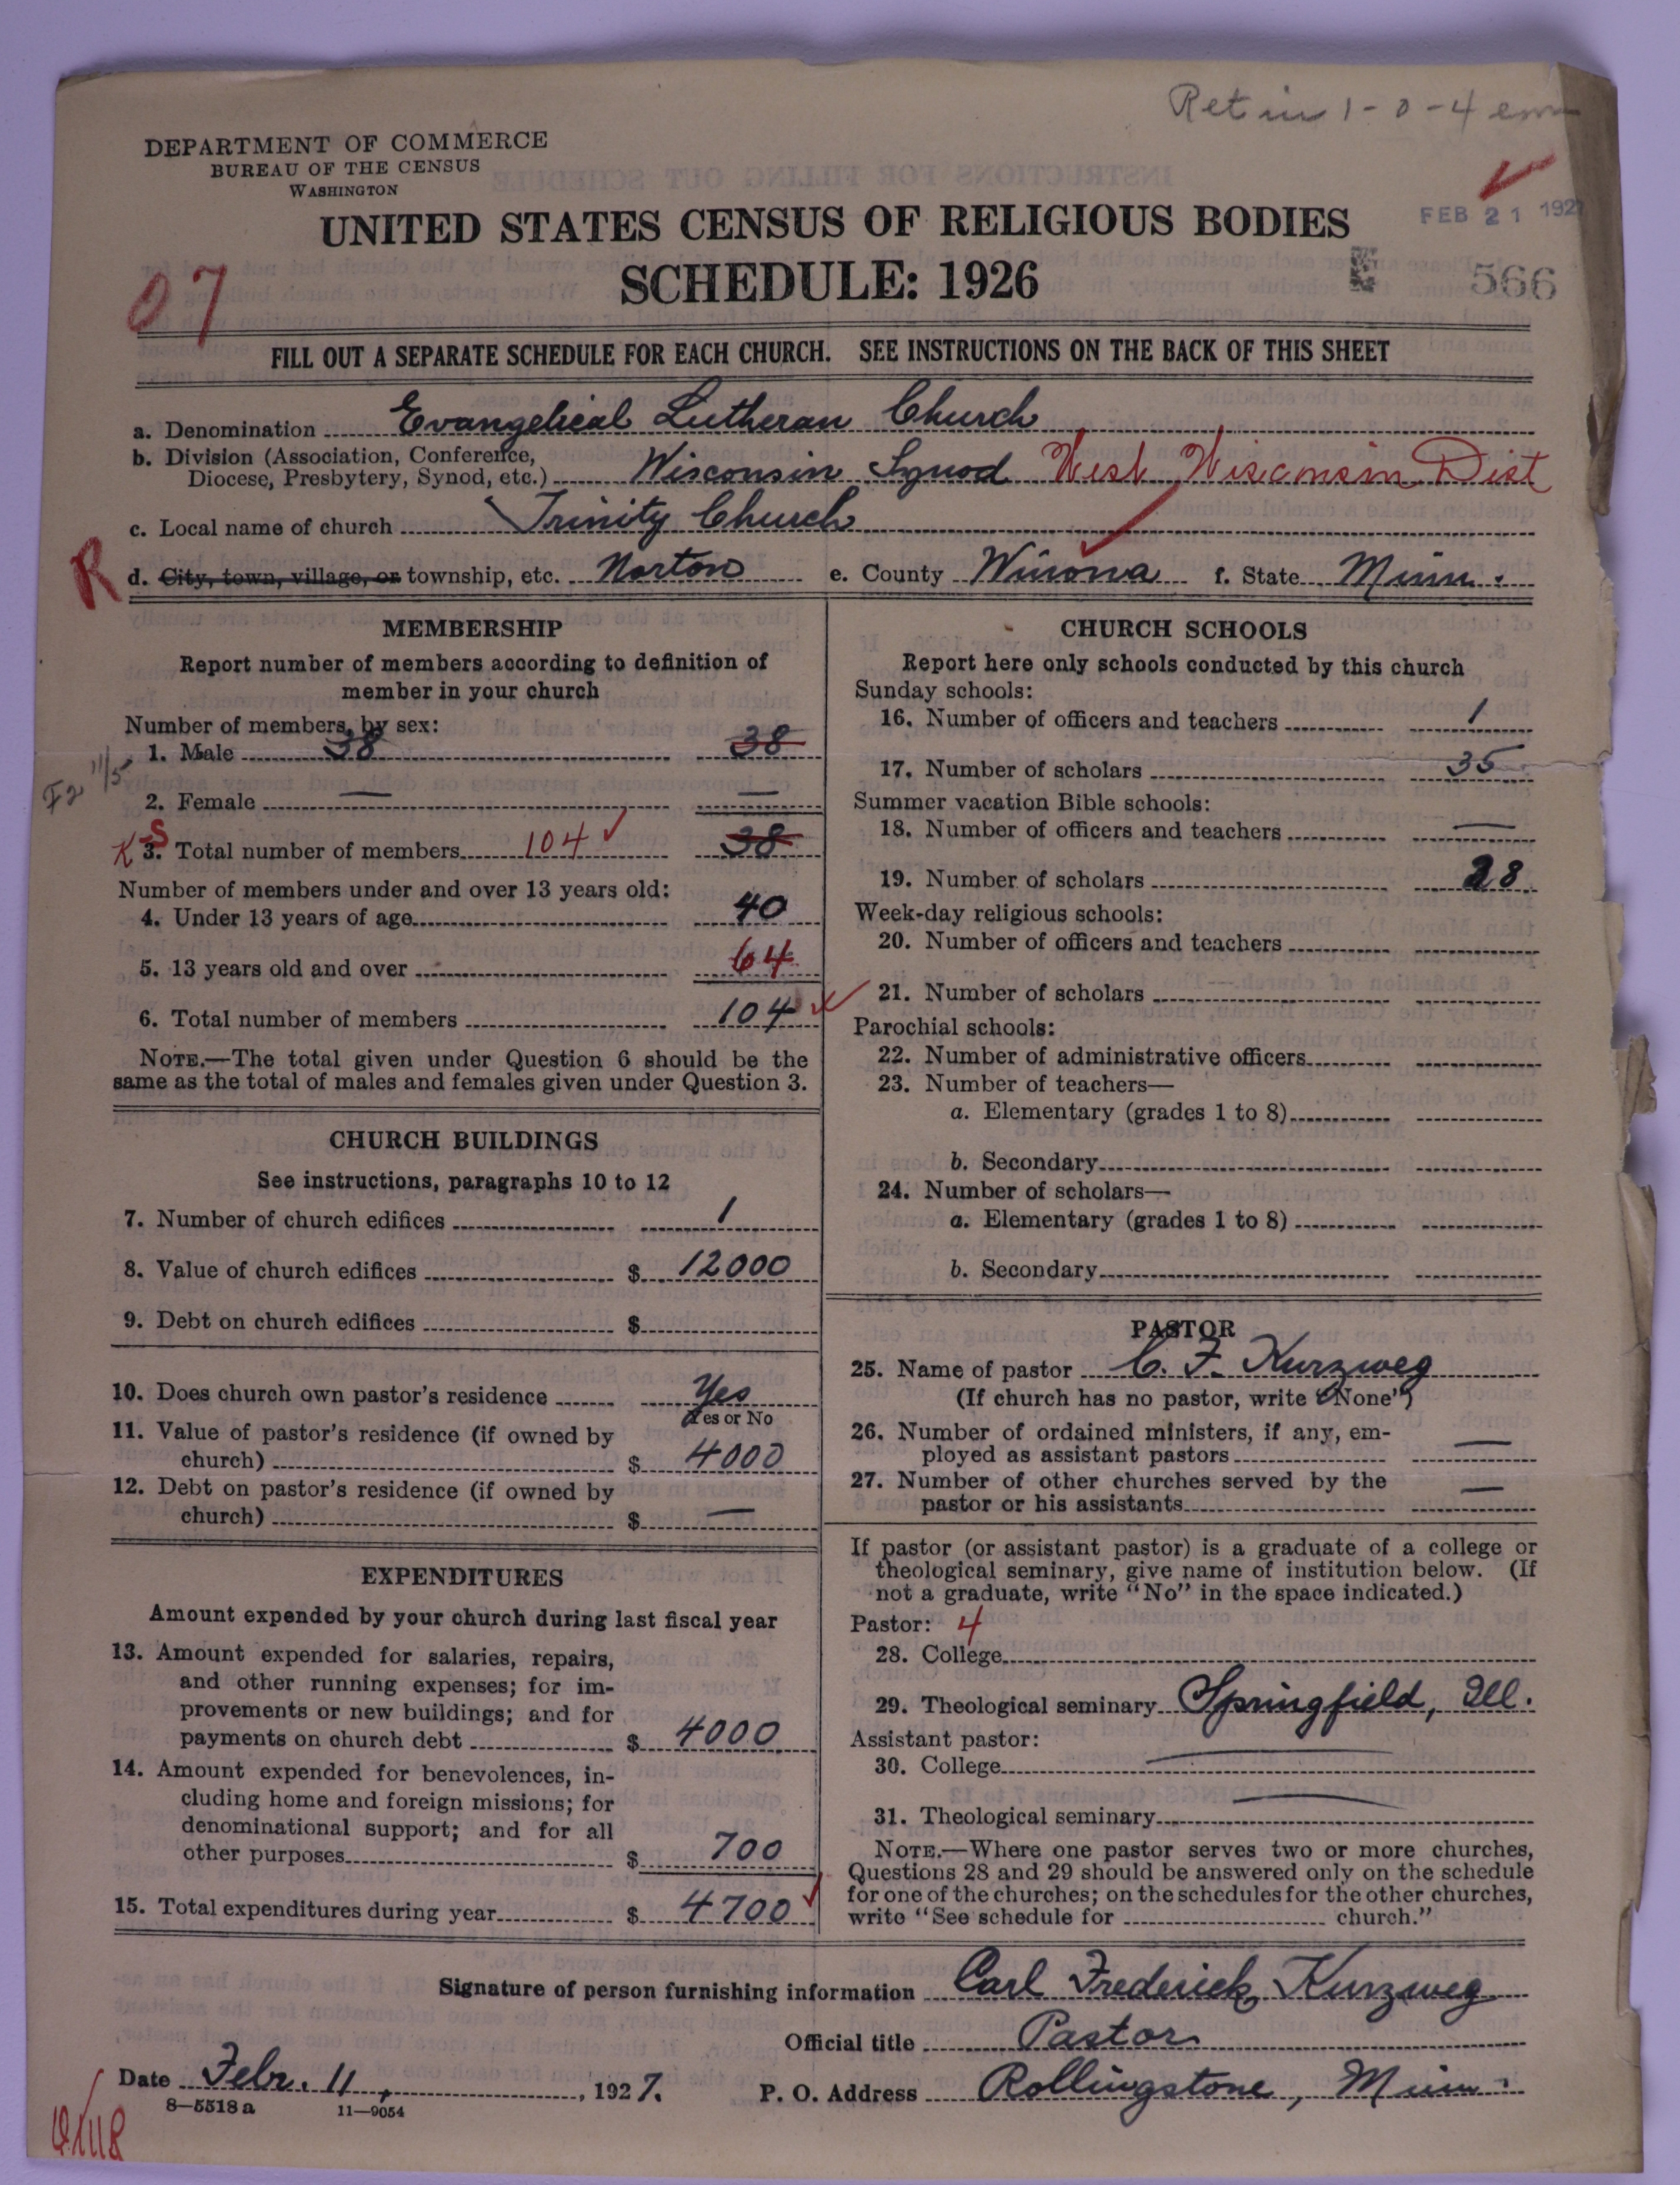 Ret in 1-0-4
DEPARTMENT OF COMMERCE
BUREAU OF THE CENSUS
WASHINGTON
UNITED STATES CENSUS OF RELIGIOUS BODIES
FEB 21 192
SCHEDULE: 1926
566
07
FILL OUT A SEPARATE SCHEDULE FOR EACH CHURCH. SEE INSTRUCTIONS ON THE BACK OF THIS SHEET
a. Denomination Evangelical Lutheran Church
b. Division (Association, Conference,
Diocese, Presbytery, Synod, etc.) Wisconsin Synod West Wisconsin Dist
c. Local name of church Trinity Church
R
d. City, town, village, or township, etc. Norton e. County Winona f. State Minn.
MEMBERSHIP
Report number of members according to definition of
member in your church
Number of members, by sex:
1. Male 38 38
F2 11/5
2. Female — —
K S
3. Total number of members 104 38
Number of members under and over 13 years old:
4. Under 13 years of age 40
5. 13 years old and over 64
6. Total number of members 104
NOTE.—The total given under Question 6 should be the
same as the total of males and females given under Question 3.
CHURCH BUILDINGS
See instructions, paragraphs 10 to 12
7. Number of church edifices 1
8. Value of church edifices $ 12000
9. Debt on church edifices $
10. Does church own pastor's residence Yes
Yes or No
11. Value of pastor's residence (if owned by
church) $ 4000
12. Debt on pastor's residence (if owned by
church) $ —
EXPENDITURES
Amount expended by your church during last fiscal year
13. Amount expended for salaries, repairs,
and other running expenses; for im-
provements or new buildings; and for
payments on church debt $ 4000
14. Amount expended for benevolences, in-
cluding home and foreign missions; for
denominational support; and for all
other purposes $ 700
15. Total expenditures during year $ 4700
CHURCH SCHOOLS
Report here only schools conducted by this church
Sunday schools:
16. Number of officers and teachers 1
17. Number of scholars 35
Summer vacation Bible schools:
18. Number of officers and teachers —
19. Number of scholars 28
Week-day religious schools:
20. Number of officers and teachers
21. Number of scholars
Parochial schools:
22. Number of administrative officers
23. Number of teachers—
a. Elementary (grades 1 to 8)
b. Secondary
24. Number of scholars—
a. Elementary (grades 1 to 8)
b. Secondary
PASTOR
25. Name of pastor C. F. Kurzweg
(If church has no pastor, write "None")
26. Number of ordained ministers, if any, em-
ployed as assistant pastors —
27. Number of other churches served by the
pastor or his assistants —
If pastor (or assistant pastor) is a graduate of a college or
theological seminary, give name of institution below. (If
not a graduate, write "No" in the space indicated.)
Pastor: 4
28. College
29. Theological seminary Springfield, Ill.
Assistant pastor:
30. College —
31. Theological seminary —
NOTE.—Where one pastor serves two or more churches,
Questions 28 and 29 should be answered only on the schedule
for one of the churches; on the schedules for the other churches,
write "See schedule for church."
Signature of person furnishing information Carl Frederick Kurzweg
Official title Pastor
Date Febr. 11, 1927. P. O. Address Rollingstone, Minn.
8—5518a 11—9054